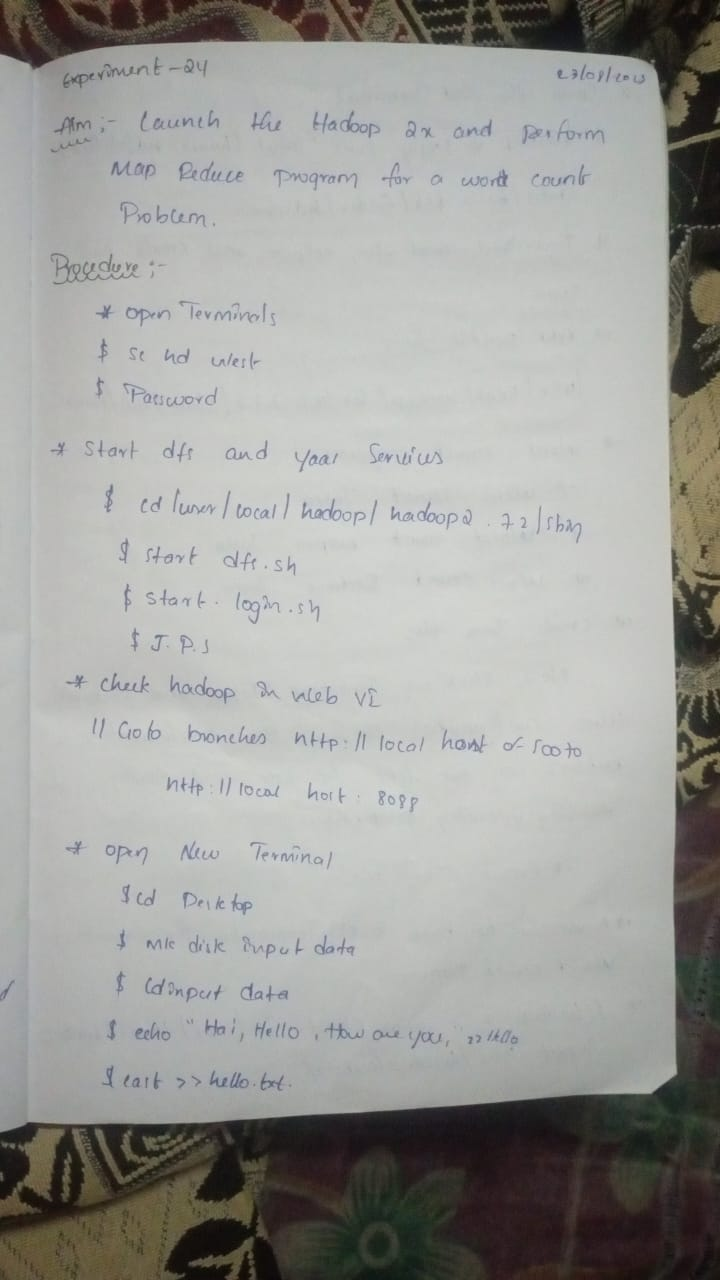 Experiment-24
Aim :- Launch the Hadoop 2x and perform
Map Reduce program for a word count
Problem.
Procedure :-
* open Terminals
$ se hd west
$ Password
* Start dfs and yaar Services
$ cd /user/local/ hadoop/ hadoop2.72/sbin
$ start dfs.sh
$ start. login.sh
$ J.P.S
* check hadoop in web VI
// Goto bronches http:// local host of 50070
http:// local host. 8088
* open New Terminal
$ cd Desktop
$ mk disk input data
$ cd input data
$ echo "Hai, Hello, How are you, >> Hello
$ cart >> hello.txt.